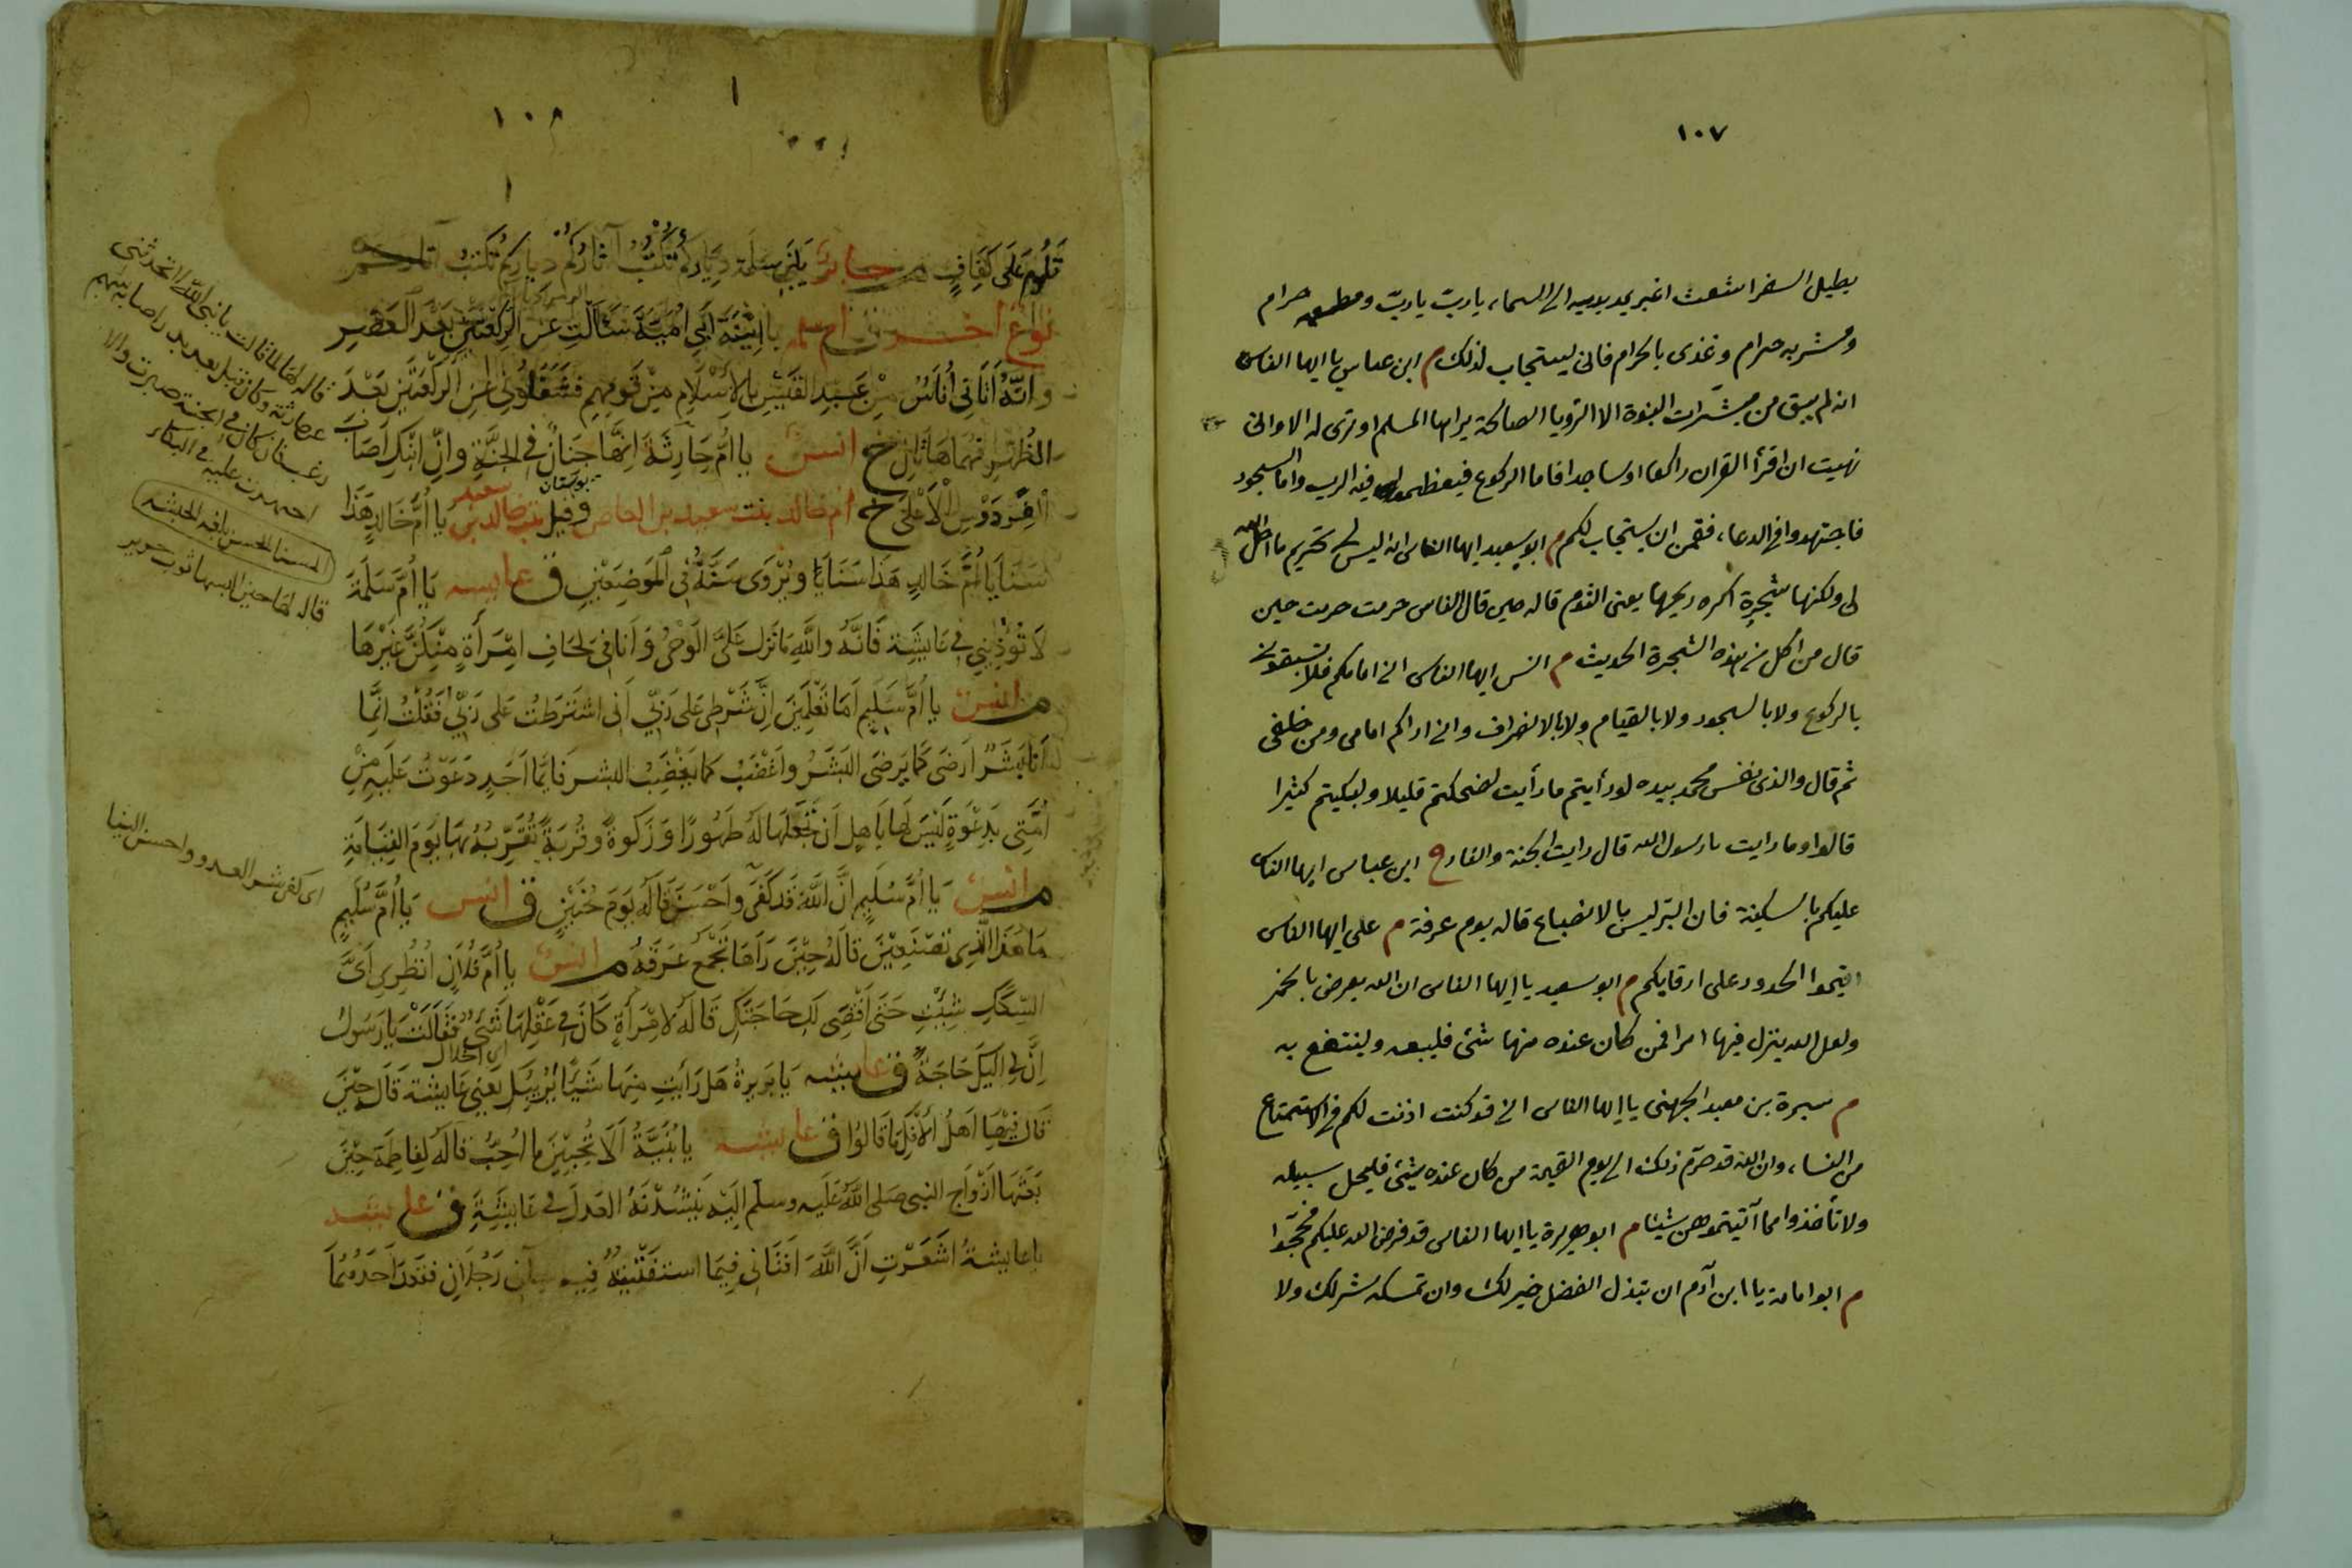 ١٠٧
يطيل السفر اشعث اغبر يمد يديه الى السماء يا ربّ يا ربّ ومطعمه حرام
ومشربه حرام وغذى بالحرام فانى يستجاب لذلك م ابن عباس يا ايها الناس
انه لم يبق من مبشّرات النبوة الا الرؤيا الصالحة يراها المسلم او ترى له الا وانى
نهيت ان اقرأ القران راكعا او ساجدا فاما الركوع فيعظموا فيه الرب واما السجود
فاجتهدوا فى الدعاء فقمن ان يستجاب لكم م ابو سعيد ايها الناس انه ليس لى تحريم ما احل الله
لى ولكنها شجرة اكره ريحها يعنى الثوم قاله حين قال الناس حرمت حرمت حين
قال من اكل من هذه الشجرة الحديث م انس ايها الناس انى امامكم فلا تسبقونى
بالركوع ولا بالسجود ولا بالقيام ولا بالانصراف وانى اراكم امامى ومن خلفى
ثم قال والذى نفس محمد بيده لو رأيتم ما رأيت لضحكتم قليلا ولبكيتم كثيرا
قالوا وما رايت يا رسول الله قال رايت الجنة والنار ق ابن عباس ايها الناس
عليكم بالسكينة فان البرّ ليس بالايضاع قاله يوم عرفة م على ايها الناس
اقيموا الحدود على ارقايكم م ابو سعيد يا ايها الناس ان الله يعرض بالخمر
ولعل الله ينزل فيها امرا فمن كان عنده منها شئ فليبعه ولينتفع به
م سبرة بن معبد الجهنى يا ايها الناس انى قد كنت اذنت لكم فى الاستمتاع
من النساء وان الله قد حرّم ذلك الى يوم القيمة من كان عنده شئ فليخل سبيله
ولا تأخذوا مما آتيتموهن شيئا م ابو هريرة يا ايها الناس قد فرض الله عليكم فحجّوا
م ابو امامة يا ابن آدم ان تبذل الفضل خير لك وان تمسكه شر لك ولا
١
١٠٨
تَلُومُ عَلَى كَفَافٍ م جابر يا بَنِي سَلِمَةَ دِيَارَكُمْ تُكْتَبْ آثَارُكُمْ دِيَارَكُمْ تُكْتَبْ آثَارُكُمْ
نوع آخر ق ام سلمه يا ابْنَةَ اَبِي اُمَيَّةَ سَاَلْتِ عَنِ الرَّكْعَتَيْنِ بَعْدَ الْعَصْرِ
وَاِنَّهُ اَتَانِي اُنَاسٌ مِنْ عَبْدِ القَيْسِ بالاِسْلَامِ مِنْ قَوْمِهِمْ فَشَغَلُونِي عَنِ الرَّكْعَتَيْنِ بَعْدَ
الظُّهْرِ فَهُمَا هَاتَانِ خ انس يا اُمَّ حَارِثَةَ اِنَّهَا جِنَانٌ فِي الجَنَّةِ وَاِنَّ ابْنَكِ اَصَابَ
بوستان
الفِرْدَوْسَ الْاَعْلَى خ ام خالد بنت سعيد بن العاص وقيل بنت خالد بن سعيد يا اُمَّ خَالِدٍ هَذَا
سَنَا يَا اُمَّ خَالِدٍ هَذَا سَنَا يَا وَيُرْوَى سَنَهْ فِي الْمَوْضِعَيْنِ ق عايشه يَا اُمَّ سَلَمَةَ
لَا تُؤْذِينِي فِي عَايِشَةَ فَاِنَّهُ وَاللَّهِ مَا نَزَلَ عَلَيَّ الْوَحْيُ وَاَنَا فِي لِحَافِ امْرَأَةٍ مِنْكُنَّ غَيْرِهَا
م انس يا اُمَّ سُلَيْمٍ اَمَا تَعْلَمِينَ اِنَّ شَرْطِي عَلَى رَبِّي اَنِّي اشْتَرَطْتُ عَلَى رَبِّي فَقُلْتُ اِنَّمَا
اَنَا بَشَرٌ اَرْضَى كَمَا يَرْضَى الْبَشَرُ وَاَغْضَبُ كَمَا يَغْضَبُ البشر فَاَيُّمَا اَحَدٍ دَعَوْتُ عَلَيْهِ مِنْ
اُمَّتِي بِدَعْوَةٍ لَيْسَ لَهَا بِاَهْلٍ اَنْ تَجْعَلَهَا لَهُ طَهُورًا وَزَكَوةً وَقُرْبَةً تُقَرِّبُهُ بِهَا يَوْمَ القِيَامَةِ
م انس يَا اُمَّ سُلَيْمٍ اِنَّ اللَّهَ قَدْ كَفَى وَاَحْسَنَ قَالَهُ يَوْمَ حُنَيْنٍ ق انس يَا اُمَّ سُلَيْمٍ
مَا هَذَا الَّذِي تَصْنَعِينَ قَالَهُ حِيْنَ رَآهَا تَجْمَعُ عَرَقَهُ م انس يا اُمَّ فُلَانٍ انْظُرِي اَيَّ
السِّكَكِ شِئْتِ حَتَّى اَقْضِيَ لَكِ حَاجَتَكِ قَالَهُ لِامْرَأَةٍ كَانَ فِي عَقْلِهَا شَيْءٌ فَقَالَتْ يَا رَسُولَ
اِنَّ لِي اِلَيْكَ حَاجَةً ق عايشه يَا بَرِيرَةُ هَلْ رَاَيْتِ مِنْهَا شَيْئًا يُرِيبُكِ يَعْنِي عَايِشَةَ قَالَهُ حِيْنَ
قَالَ فِيْهَا اَهْلُ الْاِفْكِ مَا قَالُوا ق عايشه يا بُنَيَّةُ اَلَا تُحِبِّيْنَ مَا اُحِبُّ قَالَهُ لِفَاطِمَةَ حِيْنَ
بَعَثَهَا اَزْوَاجُ النبي صَلى اللَّهُ عَلَيه وسلّم اِلَيْهِ يَنْشُدْنَهُ الْعَدْلَ فِي عَايِشَةَ ق عايشه
يا عايشةُ اَشَعَرْتِ اَنَّ اللَّهَ اَفْتَانِي فِيمَا اسْتَفْتَيْتُهُ فِيهِ رَجُلَانِ فَقَعَدَ اَحَدُهُمَا
قاله لها لما قالت يا نبى الله الا تحدثنى
عن حارثة وكان قتل يوم بدر اصابه سهم
غرب فان كان فى الجنة صبرت والا
اجتهدت عليه فى البكاء
السنا الحسن بلغة الحبشة
قاله لها حين البسها ثوب حرير
اى كفى شر العدو واحسن الينا